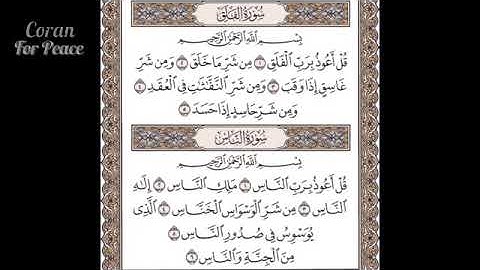 Coran
For Peace
سُورَةُ الفَلَقِ
بِسْمِ اللَّهِ الرَّحْمَٰنِ الرَّحِيمِ
قُلْ أَعُوذُ بِرَبِّ الْفَلَقِ ١ مِن شَرِّ مَا خَلَقَ ٢ وَمِن شَرِّ
غَاسِقٍ إِذَا وَقَبَ ٣ وَمِن شَرِّ النَّفَّٰثَٰتِ فِي الْعُقَدِ ٤
وَمِن شَرِّ حَاسِدٍ إِذَا حَسَدَ ٥
سُورَةُ النَّاسِ
بِسْمِ اللَّهِ الرَّحْمَٰنِ الرَّحِيمِ
قُلْ أَعُوذُ بِرَبِّ النَّاسِ ١ مَلِكِ النَّاسِ ٢ إِلَٰهِ
النَّاسِ ٣ مِن شَرِّ الْوَسْوَاسِ الْخَنَّاسِ ٤ الَّذِي
يُوَسْوِسُ فِي صُدُورِ النَّاسِ ٥
مِنَ الْجِنَّةِ وَالنَّاسِ ٦